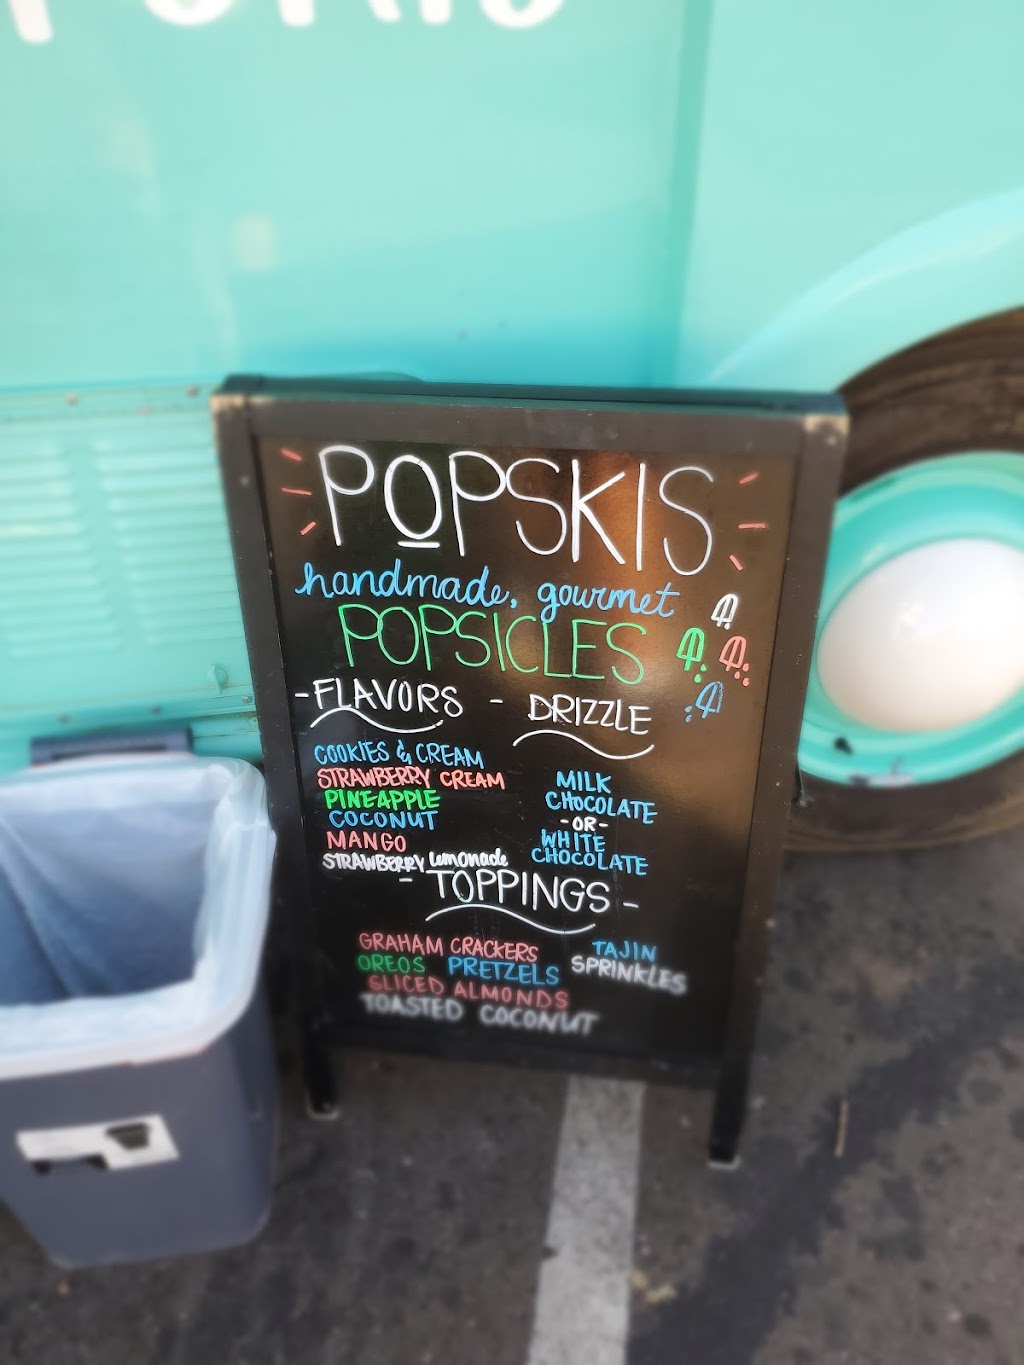 POPSKIS
handmade, gourmet
POPSICLES
- FLAVORS -
COOKIES & CREAM
STRAWBERRY CREAM
PINEAPPLE
COCONUT
MANGO
STRAWBERRY lemonade
DRIZZLE
MILK
CHOCOLATE
-OR-
WHITE
CHOCOLATE
- TOPPINGS -
GRAHAM CRACKERS
OREOS PRETZELS
SLICED ALMONDS
TOASTED COCONUT
TAJIN
SPRINKLES